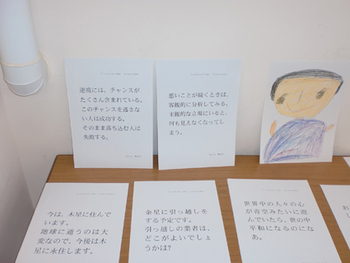 逆境には、チャンスが
たくさん含まれている。
このチャンスを逃さな
い人は成功する。
そのまま落ち込む人は
失敗する。
悪いことが続くときは、
客観的に分析してみる。
主観的な立場にいると、
何も見えなくなってし
まう。
今は、木星に住んで
います。
地球に通うのは大
変なので、今後は木
星に永住します。
金星に引っ越しを
する予定です。
引っ越しの業者は、
どこがよいでしょ
うか？
世界中の人々の心
が青空みたいに澄
んでいたら、世の中
平和になるのにな
あ。